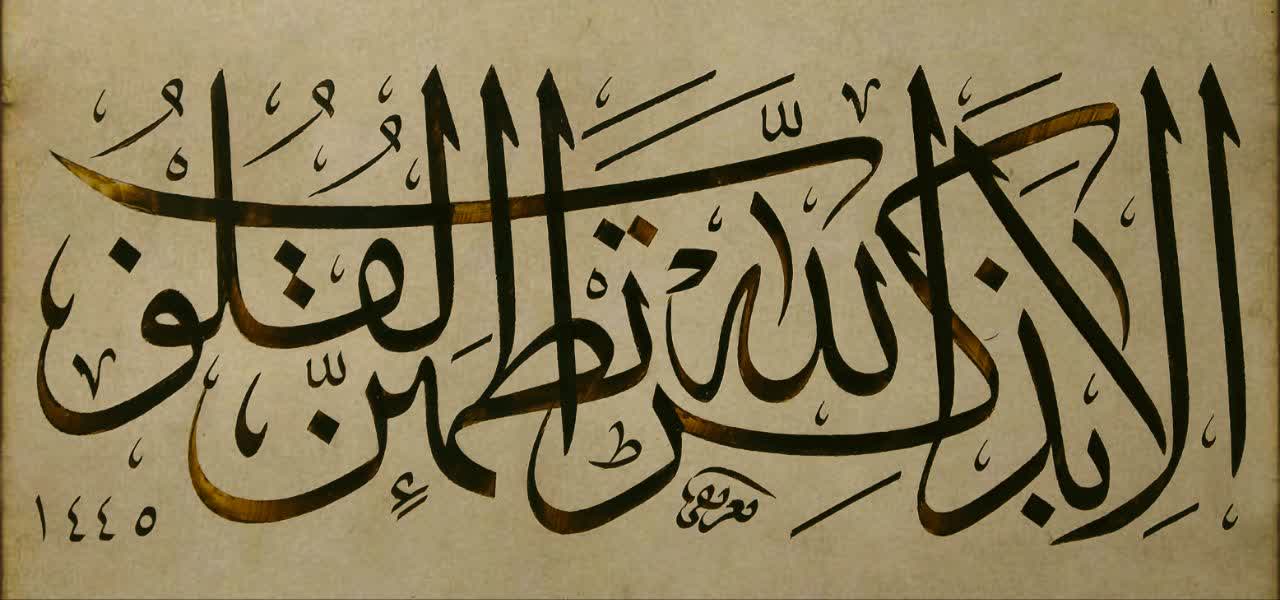 اَلَا بِذِكْرِ اللّٰهِ تَطْمَئِنُّ الْقُلُوبُ
١٤٤٥